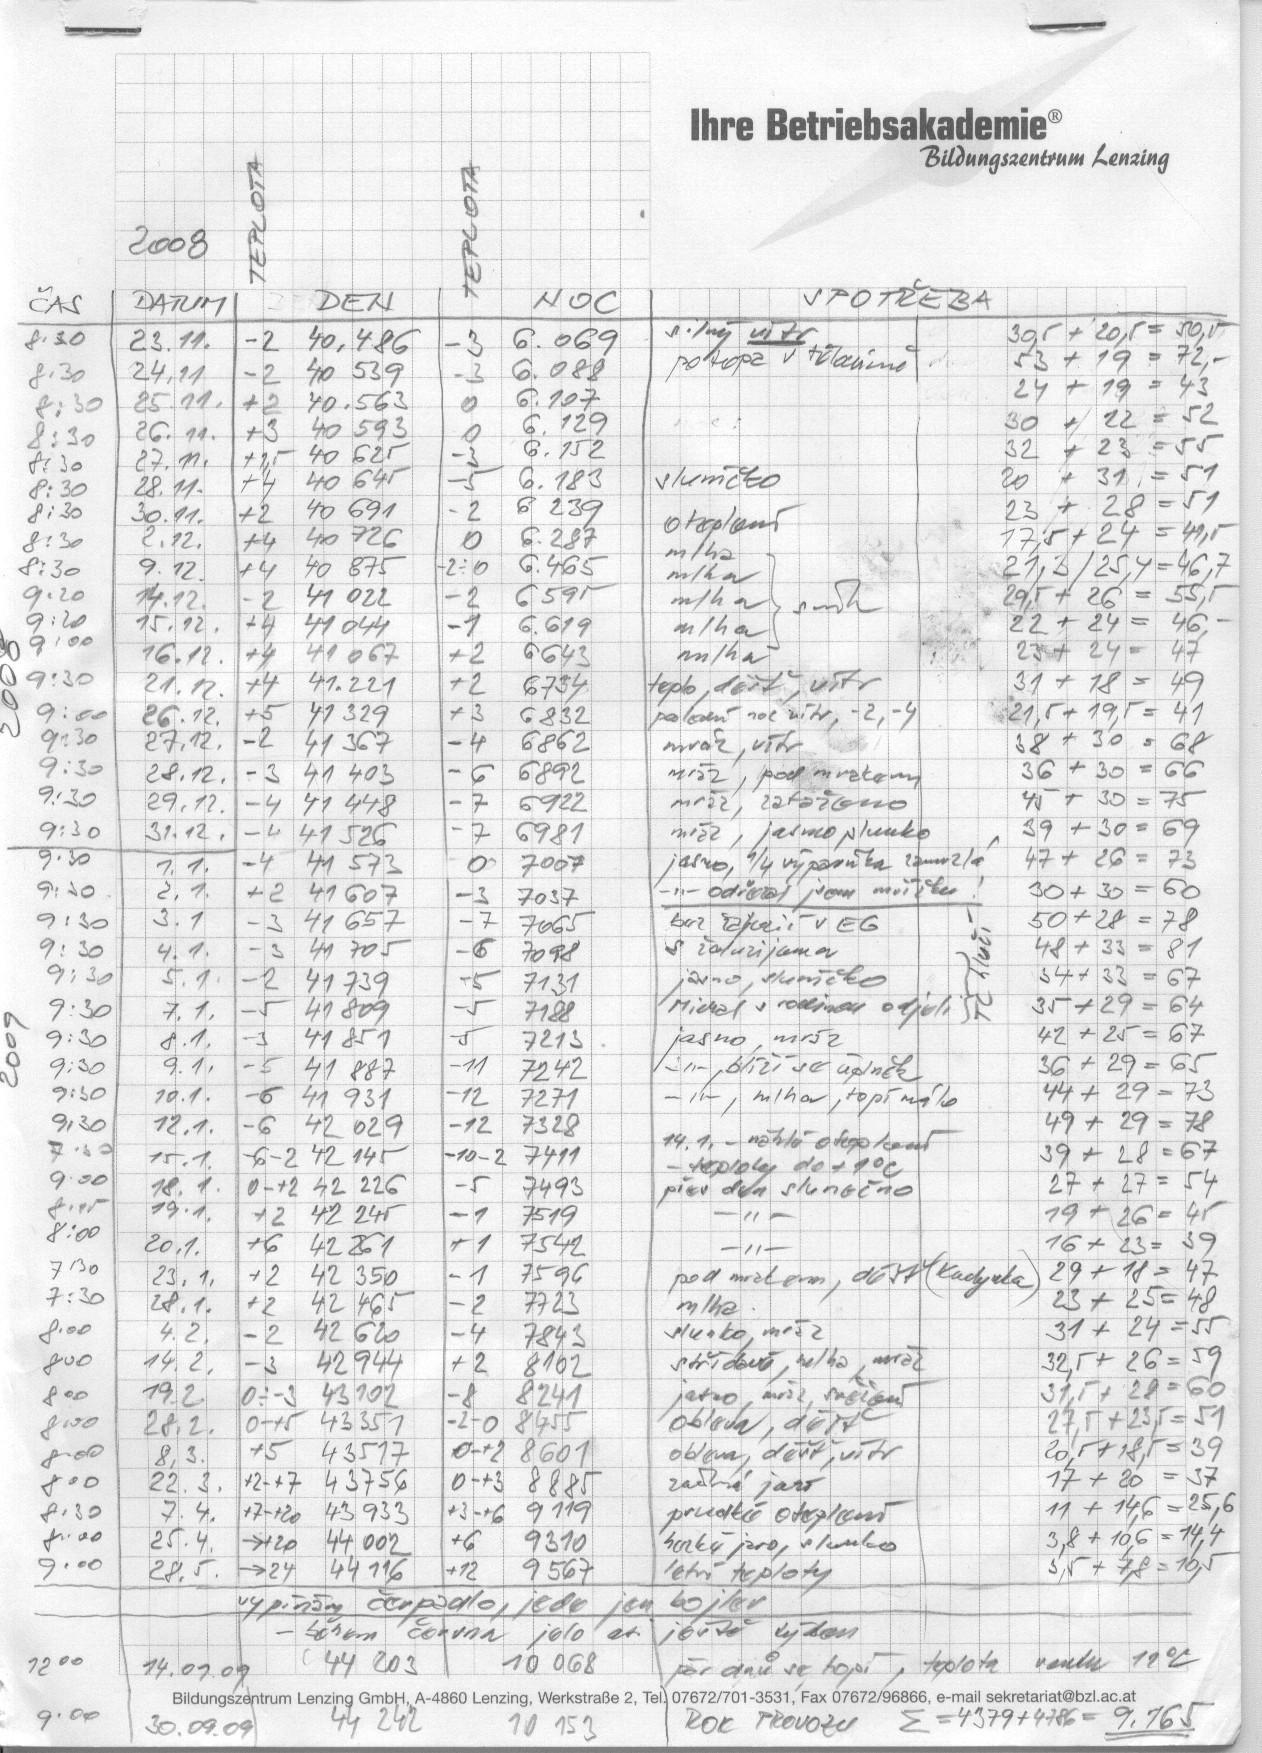 Ihre Betriebsakademie®
Bildungszentrum Lenzing
2008 TEPLOTA TEPLOTA
ČAS DATUM DEN NOC SPOTŘEBA
8:30 23.11. -2 40.486 -3 6.069 silný vítr 30,5 + 20,5 = 50,5
8:30 24.11 -2 40 539 -3 6.088 potopa v tělocvičně 53 + 19 = 72,-
8:30 25.11. +2 40.563 0 6.107 24 + 19 = 43
8:30 26.11. +3 40 593 0 6.129 30 + 22 = 52
8:30 27.11. +1,5 40 625 6.152 32 + 23 = 55
8:30 28.11. +4 40 645 -5 6.183 sluníčko 20 + 31 = 51
8:30 30.11. +2 40 691 -2 6 239 oteplení 23 + 28 = 51
8:30 2.12. +4 40 726 0 6.287 mlha 17,5 + 24 = 41,5
8:30 9.12. +4 40 875 -2÷0 6.465 mlha 21,3 / 25,4 = 46,7
9:20 14.12. -2 41 022 -2 6 595 mlha 29,5 + 26 = 55,5
9:20 15.12. +4 41 044 -1 6.619 mlha 22 + 24 = 46,-
9:00 16.12. +4 41 067 +2 6643 mlha 23 + 24 = 47
2008
9:30 21.12. +4 41.221 +2 6734 teplo, déšť, vítr 31 + 18 = 49
9:00 26.12. +5 41 329 +3 6832 poslední noc vítr, -2, -4 21,5 + 19,5 = 41
9:30 27.12. -2 41 367 -4 6862 mráz, vítr 38 + 30 = 68
9:30 28.12. -3 41 403 -6 6892 mráz, pod mrakem 36 + 30 = 66
9:30 29.12. -4 41 448 -7 6922 mráz, zataženo 45 + 30 = 75
9:30 31.12. -4 41 526 -7 6981 mráz, jasno slunko 39 + 30 = 69
9:30 1.1. -4 41 573 0 7007 jasno, 1/4 výparníku zamrzlá 47 + 26 = 73
9:30 2.1. +2 41 607 -3 7037 -"- jsem mřížku! 30 + 30 = 60
9:30 3.1 -3 41 657 -7 7065 bez žaluzií v EG 50 + 28 = 78
9:30 4.1. -3 41 705 -6 7098 s žaluzijama 48 + 33 = 81
9:30 5.1. -2 41 739 -5 7131 jasno, sluníčko 34 + 33 = 67
9:30 7.1. -5 41 809 -5 7188 Michal s rodinou odjeli 35 + 29 = 64
TČ hlučí
2009
9:30 8.1. -3 41 851 -5 7213 jasno, mráz 42 + 25 = 67
9:30 9.1. -5 41 887 -11 7242 -"-, blíží se úplněk 36 + 29 = 65
9:30 10.1. -6 41 931 -12 7271 -"-, mlha, topí málo 44 + 29 = 73
9:30 12.1. -6 42 029 -12 7328 49 + 29 = 78
14.1. - náhlé oteplení
7:30 15.1. -6-2 42 145 -10-2 7411 - teploty do +1°C 39 + 28 = 67
9:00 18.1. 0-+2 42 226 -5 7493 přes den slunečno 27 + 27 = 54
8:15 19.1. +2 42 245 -1 7519 -"- 19 + 26 = 45
8:00 20.1. +6 42 261 +1 7542 -"- 16 + 23 = 39
7:30 23.1. +2 42 350 -1 7596 pod mrakem, déšť 29 + 18 = 47
7:30 28.1. +2 42 465 -2 7723 mlha 23 + 25 = 48
8:00 4.2. -2 42 620 -4 7843 slunko, mráz 31 + 24 = 55
8:00 14.2. -3 42944 +2 8102 střídavě, mlha, mráz 32,5 + 26 = 59
8:00 19.2. 0÷-3 43102 -8 8241 jasno, mráz, sněžení 31,5 + 28 = 60
8:00 28.2. 0-+5 43351 -2-0 8455 obleva, déšť 27,5 + 23,5 = 51
8:00 8,3. +5 43517 0-+2 8601 obleva, déšť, vítr 20,5 + 18,5 = 39
8:00 22.3. +2-+7 43756 0-+3 8885 začíná jaro 17 + 20 = 37
8:30 7.4. +7-+20 43 933 +3-+6 9119 prudké oteplení 11 + 14,6 = 25,6
8:00 25.4. →+20 44 002 +6 9310 horké jaro, slunko 3,8 + 10,6 = 14,4
9:00 28.5. →24 44 116 +12 9567 letní teploty 3,5 + 7,8 = 10,5
vypínám čerpadlo, jede jen bojler
- během června jelo asi ještě týden
12:00 14.07.09 44 203 10 068 pár dnů se topí, teplota venku 12°C
Bildungszentrum Lenzing GmbH, A-4860 Lenzing, Werkstraße 2, Tel. 07672/701-3531, Fax 07672/96866, e-mail sekretariat@bzl.ac.at
9:00 30.09.09 44 242 10 153 ROK PROVOZU Σ = 4379 + 4786 = 9.165